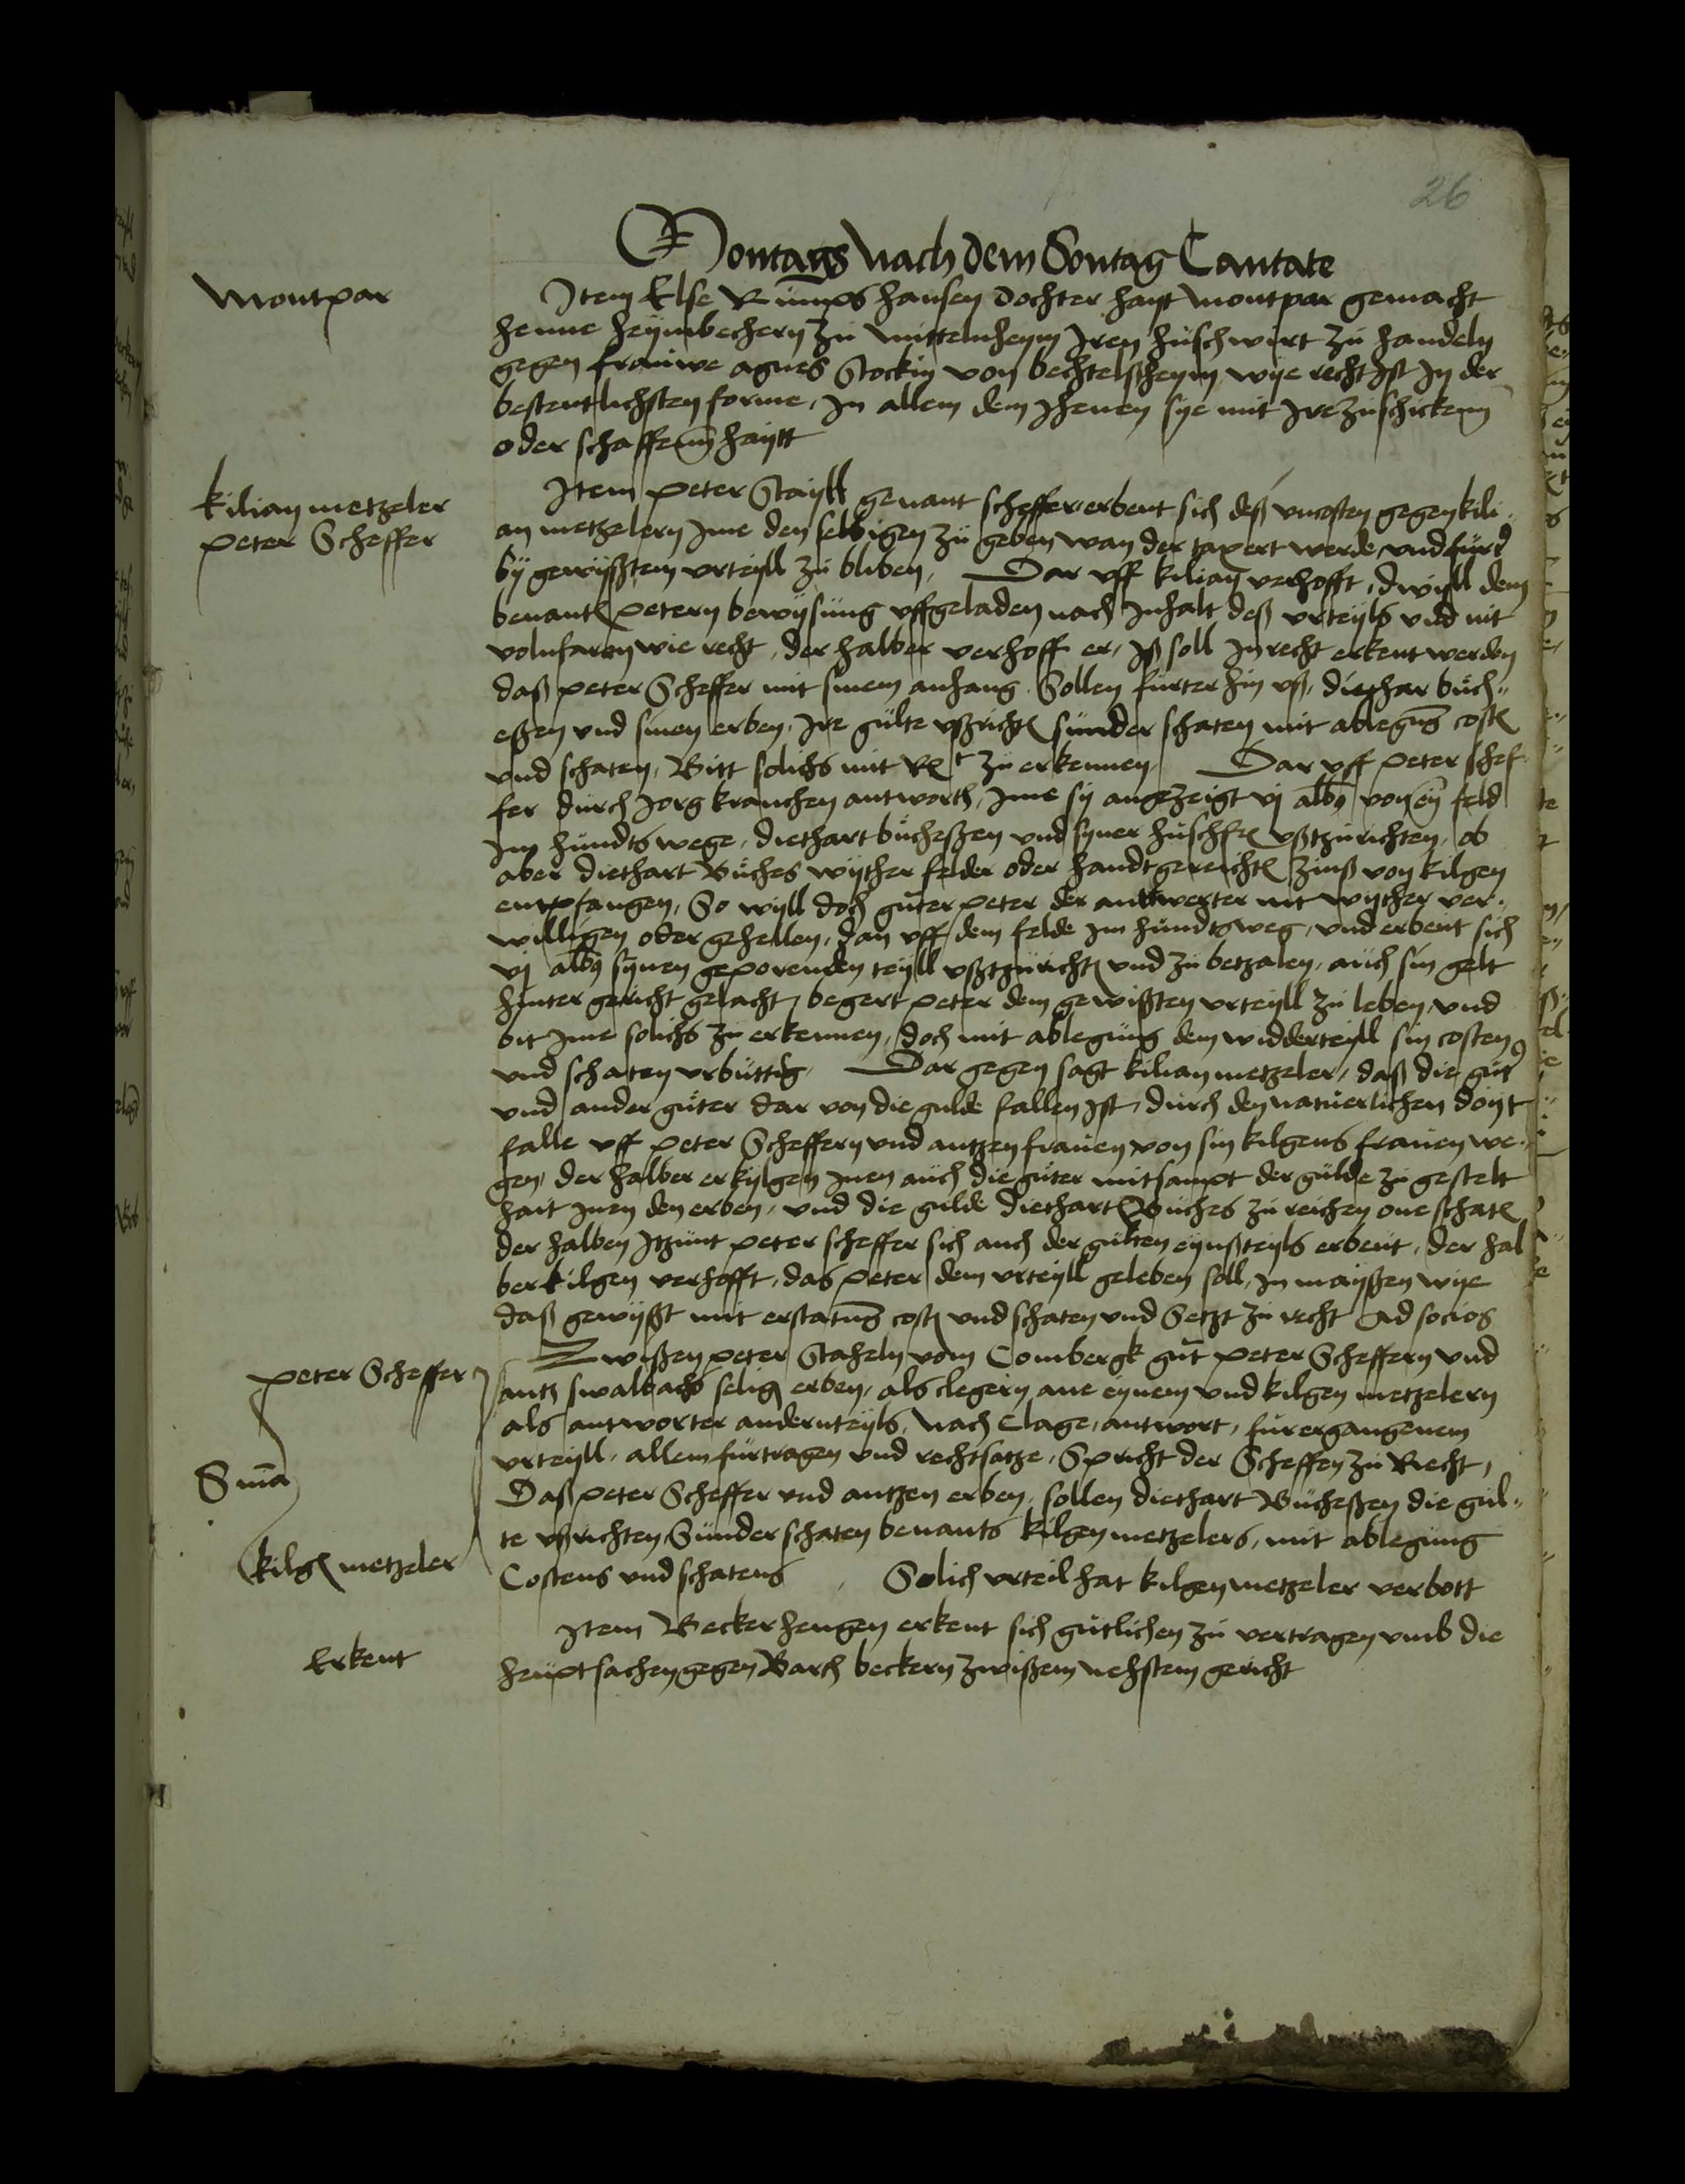 26
Montags nach dem Sontag Cantate
Montpar
Item Else Rümps hansen dochter hayt montpar gemacht
henne heymbechern zü mittelnheym Iren hüschwirt zü handeln
gegen frauwe agnes Stockin von bechtelßheym wye recht Ist In der
bestentlichsten forme, In allem dem Jhenen sye mit Ire züschicken
oder schaffenn haytt
kilian metzeler
peter Scheffer
Item peter Stayll genant scheffer erbeut sich deß uncosten gegen kili„
an metzelern Ime den selbigen zü geben wan der taxert werde und fürt
by gewyßtem urteyll zü bliben, Dar uff kilian verhofft, dwyll dem
benanten petern bewysüng uffgeladen nach Inhalt deß urteyls und nit
volnfaren wie recht, der halber verhoff er, Iß soll In recht erkent werden
daß peter Scheffer mit sinem anhang Sollen fürter hin uß, diethar büch„
eßen und sinen erben, Ire gülte ußrichten sünder schaten mit ablegung costen
und schaten, Bitt solichs mit Rt zü erkennen Dar uff peter schef
fer dürch Jorg kranchen antworth, Ime sy angezeigt vj albus von eym feld
Im hündts wege, diethart bücheßen und syner hüschfr ußtzürichten, ob
aber diethart Büches wyther felder oder handtgereichten zinß von kilgen
entpfangen, So wyll doch güter peter der antwerter nit wyther ver„
willigen oder gehellen, dan uff dem felde im hündtsweg, und erbeut sich
vj albus synen geporenden teyll ußtzürichten und zü betzalen, auch sin gelt
hinter gericht gelacht, begert peter dem gewißten urteyll zü leben, und
bit Ime solichs zü erkennen, doch mit ablegüng dem widderteyll sin costen
und schaten urbüttig, Dar gegen sagt kilian metzeler, daß die güter
und ander güter dar von die gulde fallen Ist, dürch den natüerlichen doyt
falle uff peter Scheffern und antzen frauen von sin kilgens frauen we„
gen, der halber er kylgen Inen auch die güter mitsampt der gülde zü gestelt
hait Inen den erben, und die gulde diethart Büches zü reichen one schaten
der halben Itzünt peter scheffer sich auch der gülten eynßteyls erbeut, der hal
ber kilgen verhofft, das peter dem urteyll geleben soll, In mayßen wye
daß gewyßt mit erstatung costen und schaten und Setzt zü recht Ad socios
peter Scheffer
Zwißen peter Staheln vom Combergk gnt peter Scheffern und
antz swalbachs selig erben, als clegern ane eynem und kilgen metzelern
als antworter andernteyls, nach Clage, antwort, für ergangenem
urteyll, allem fürtragen und rechtsatze, Spricht der Scheffen zü Recht,
Snia
Daß peter Scheffer und antzen erben, sollen diethart Bücheßen die gül„
te ußrichten, Sünder schaten benants kilgen metzelers, mit ablegung
kilgen metzeler
Costens und schatens, Solich urteil hat kilgen metzeler verbott
Erkent
Item Becker hengen erkent sich gütlichen zü vertragen umb die
heüptsachen gegen Barth beckern zwißem nehstem gericht